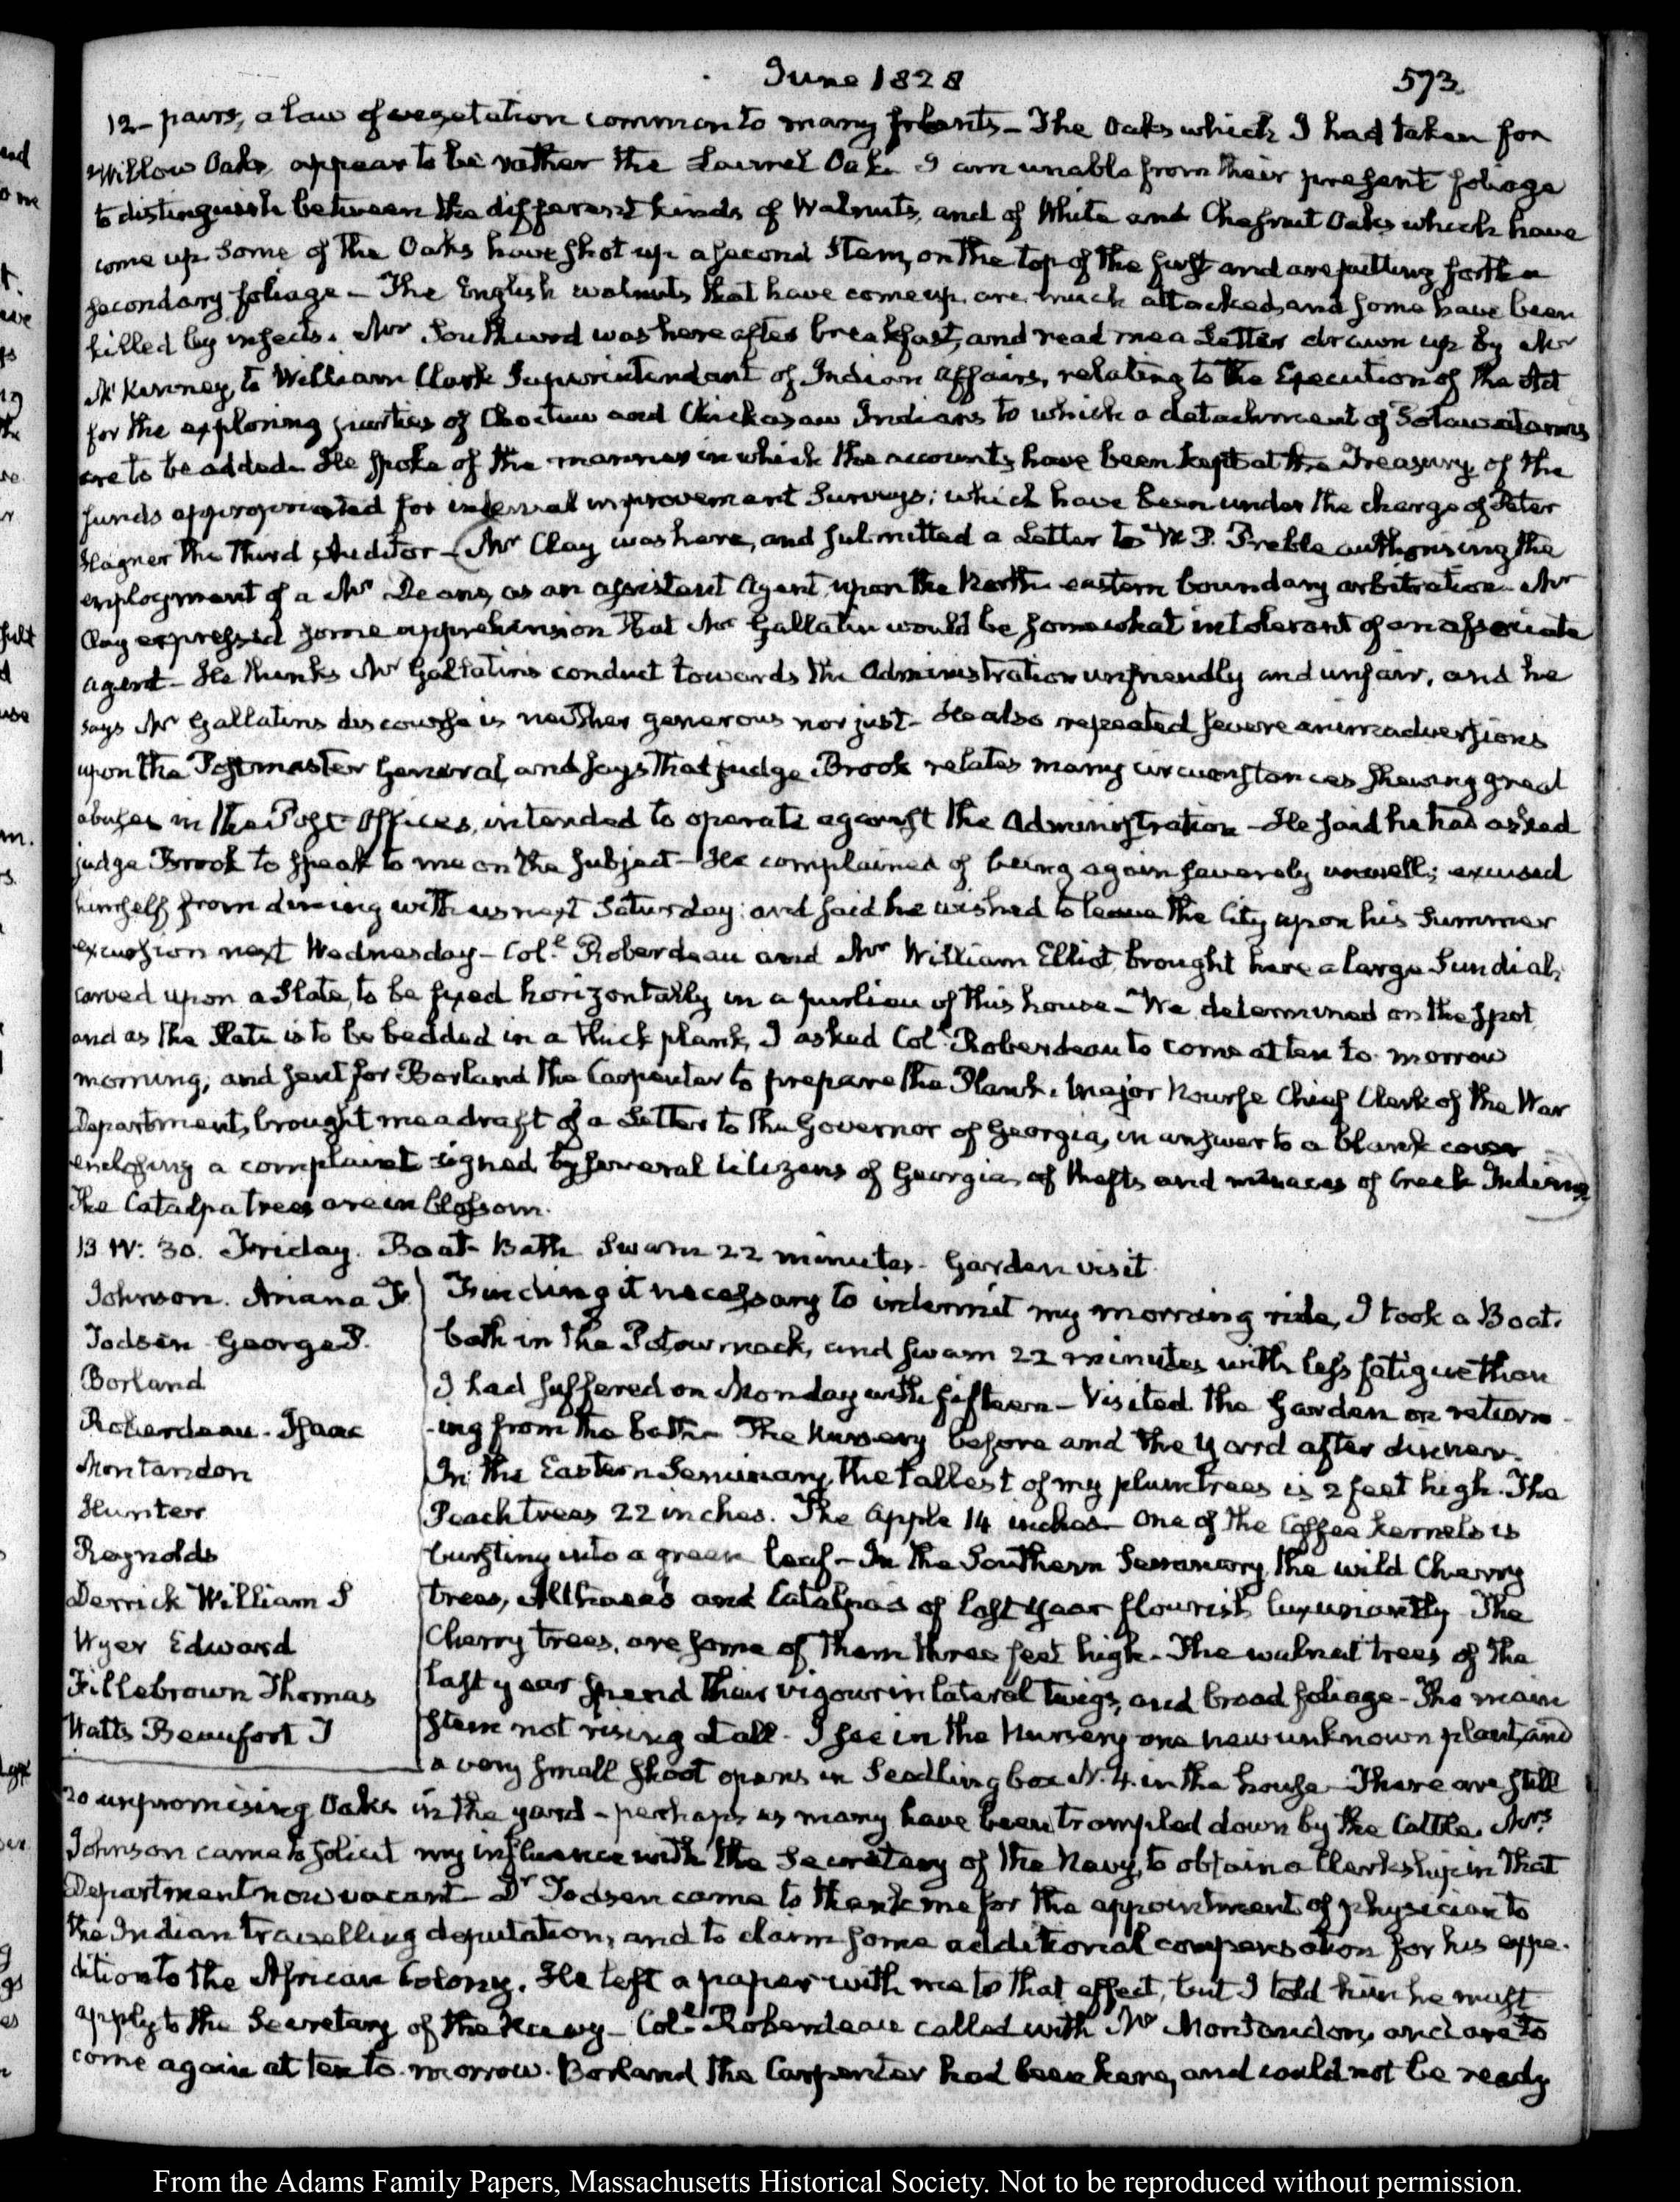 June 1828
573.
12- pairs, a law of vegetation common to many plants - The Oaks which I had taken for
Willow Oaks, appear to be rather the Laurel Oak. I am unable from their present foliage
to distinguish between the different kinds of Walnuts, and of White and Chesnut Oaks which have
come up. Some of the Oaks have shot up a second Stem, on the top of the first and are putting forth a
secondary foliage - The English walnuts that have come up, are much attacked, and some have been
killed by insects. Mr Southard was here after breakfast, and read me a Letter drawn up by Mr
McKenney, to William Clark Superintendant of Indian Affairs, relating to the Execution of the Act
for the exploring parties of Choctaw and Chickasaw Indians to which a detachment of Potawatamis
are to be added. He spoke of the manner in which the accounts have been kept at the Treasury of the
funds appropriated for internal improvement Surveys; which have been under the charge of Peter
Hagner the Third Auditor - Mr Clay was here, and submitted a Letter to W. P. Preble authorising the
employment of a Mr Deane, as an assistant Agent upon the North eastern boundary arbitration. Mr
Clay expressed some apprehension that Mr Gallatin would be somewhat intolerant of an associate
agent - He thinks Mr Gallatin's conduct towards the Administration unfriendly and unfair, and he
says Mr Gallatins discourse is neither generous nor just - He also repeated severe animadversions
upon the Postmaster General, and says that judge Brook relates many circumstances shewing great
abuses in the Post-Offices, intended to operate against the Administration - He said he had asked
judge Brook to speak to me on the subject - He complained of being again severely unwell; excused
himself from dining with us next Saturday; and said he wished to leave the City upon his Summer
excursion next Wednesday - Coll Roberdeau and Mr William Elliot brought here a large Sun dial,
carved upon a Slate, to be fixed horizontally in a purlieu of this house - We determined on the spot
and as the Slate is to be bedded in a thick plank, I asked Coll Roberdeau to come at ten to-morrow
morning; and sent for Borland the Carpenter to prepare the Plank. Major Nourse Chief Clerk of the War
Department, brought me a draft of a Letter to the Governor of Georgia, in answer to a blank cover
enclosing a complaint signed by several Citizens of Georgia, of thefts and menaces of Creek Indians
The Catalpa trees are in blossom.
13. IV: 30. Friday. Boat-Bath Swam 22 minutes - Garden visit
Johnson. Ariana Jr
Todsen George P.
Borland
Roberdeau - Isaac
Montandon
Hunter
Reynolds
Derrick William S
Wyer Edward
Fillebrown Thomas
Watts Beaufort T
Finding it necessary to intermit my morning ride, I took a Boat.
bath in the Potowmack, and swam 22 minutes with less fatigue than
I had suffered on Monday with fifteen - Visited the Garden on return-
-ing from the bath - The Nursery before and the Yard after dinner.
In the Eastern Seminary, the tallest of my plum trees is 2 feet high. The
Peach trees 22 inches. The Apple 14 inches - One of the Coffee kernels is
bursting into a green leaf - In the Southern Seminary, the wild Cherry
trees, Althaea's and Catalpas of last year flourish luxuriantly. The
Cherry trees, are some of them three feet high - The walnut trees of the
last year spend their vigour in lateral twigs, and broad foliage - The main
stem not rising at all - I see in the Nursery one new unknown plant, and
a very small shoot opens in Seedling box N. 4. in the house - There are still
20 unpromising Oaks in the yard - perhaps as many have been trampled down by the Cattle. Mrs
Johnson came to solicit my influence with the Secretary of the Navy, to obtain a Clerkship in that
Department now vacant - Dr Todsen came to thank me for the appointment of physician to
the Indian travelling deputation, and to claim some additional compensation for his expe-
dition to the African Colony. He left a paper with me to that effect, but I told him he must
apply to the Secretary of the Navy - Coll Roberdeau called with Mr Montandon, and are to
come again at ten to-morrow. Borland the Carpenter had been here, and could not be ready
From the Adams Family Papers, Massachusetts Historical Society. Not to be reproduced without permission.